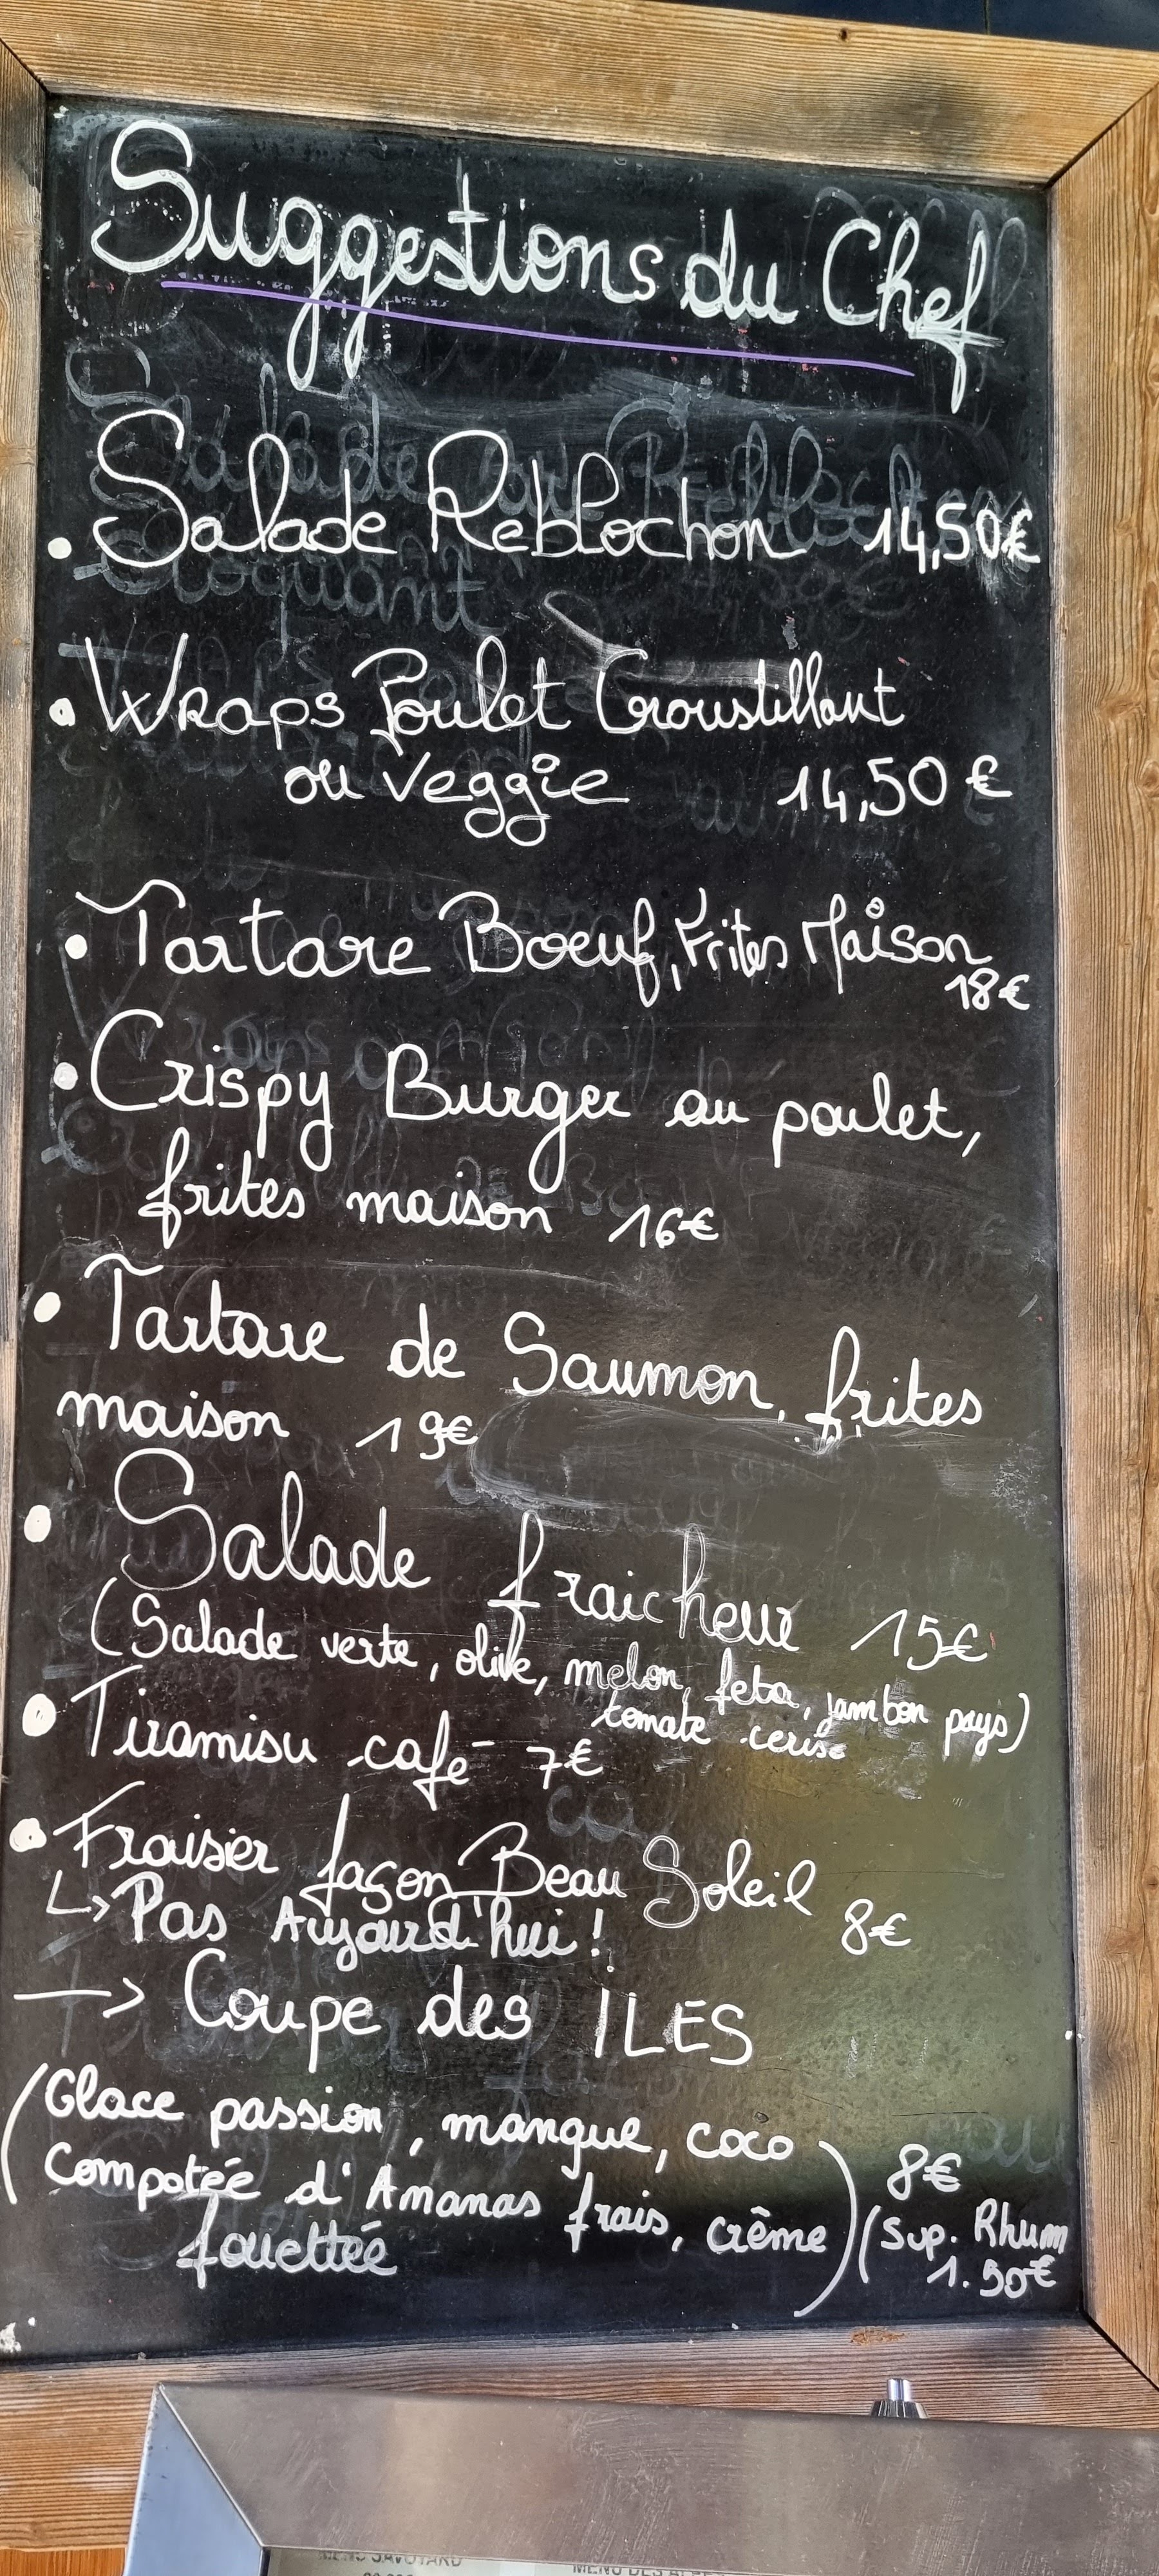 Suggestions du Chef
• Salade Reblochon 14,50€
• Wraps Poulet Croustillant
ou Veggie 14,50 €
• Tartare Boeuf, Frites Maison
18€
• Crispy Burger au poulet,
frites maison 16€
• Tartare de Saumon, frites
maison 19€
• Salade fraicheur 15€
(Salade verte, olive, melon, feta, jambon pays)
tomate cerise
• Tiramisu café 7€
• Fraisier façon Beau Soleil 8€
↳ Pas Aujourd'hui !
→ Coupe des ILES
(Glace passion, mangue, coco
Compotée d'Ananas frais, crème
fouettée) 8€
(Sup. Rhum
1.50€
MENU SAVOYARD